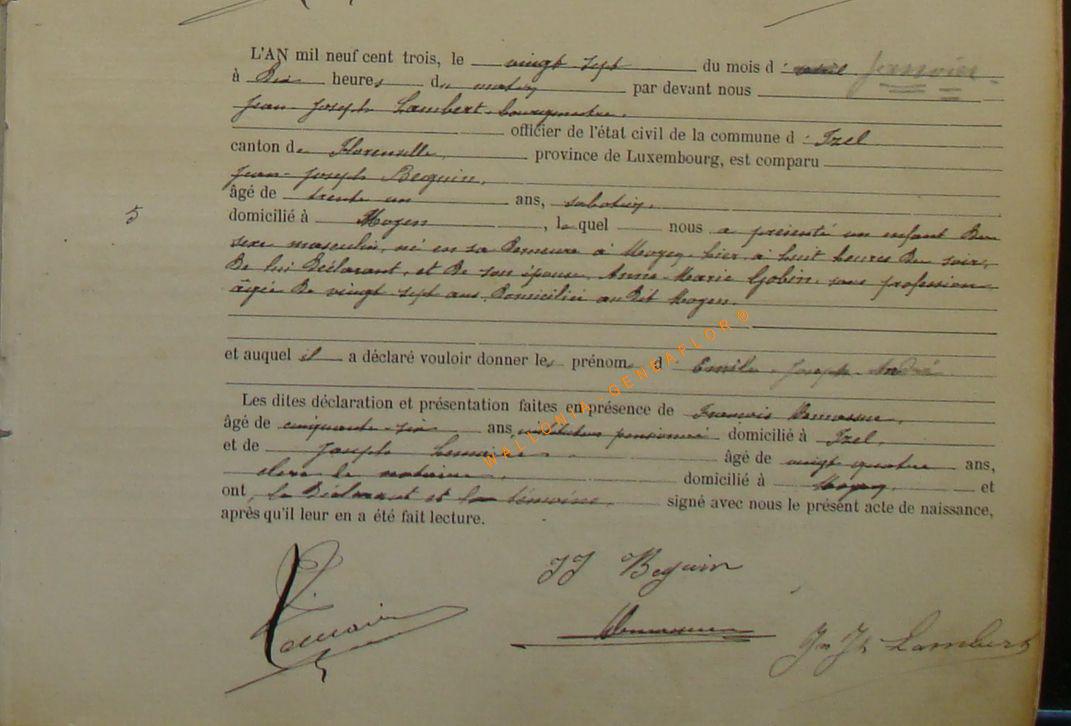 L'AN mil neuf cent trois, le vingt sept du mois d' avril Janvier
à Dix heures du matin par devant nous
Jean Joseph Lambert, bourgmestre,
officier de l'état civil de la commune d' Izel
canton de Florenville province de Luxembourg, est comparu
Jean-Joseph Bequin,
âgé de trente un ans, sabotier,
5 domicilié à Moyen, lequel nous a présenté un enfant du
sexe masculin, né en sa demeure à Moyen, hier, à huit heures du soir,
de lui Déclarant, et de son épouse, Anne-Marie Gobin, sans profession
âgée de vingt sept ans, domiciliée audit Moyen.
et auquel il a déclaré vouloir donner les prénoms d' Emile Joseph André
Les dites déclaration et présentation faites en présence de François
âgé de cinquante-six ans instituteur pensionné domicilié à Izel,
et de Joseph Lemaire âgé de vingt quatre ans,
clerc de notaire, domicilié à Moyen, et
ont, le Déclarant et les témoins, signé avec nous le présent acte de naissance,
après qu'il leur en a été fait lecture.
JJ Bequin
J. Lemaire
Jn Jh Lambert
WALLONIA-GENEAFLOR®